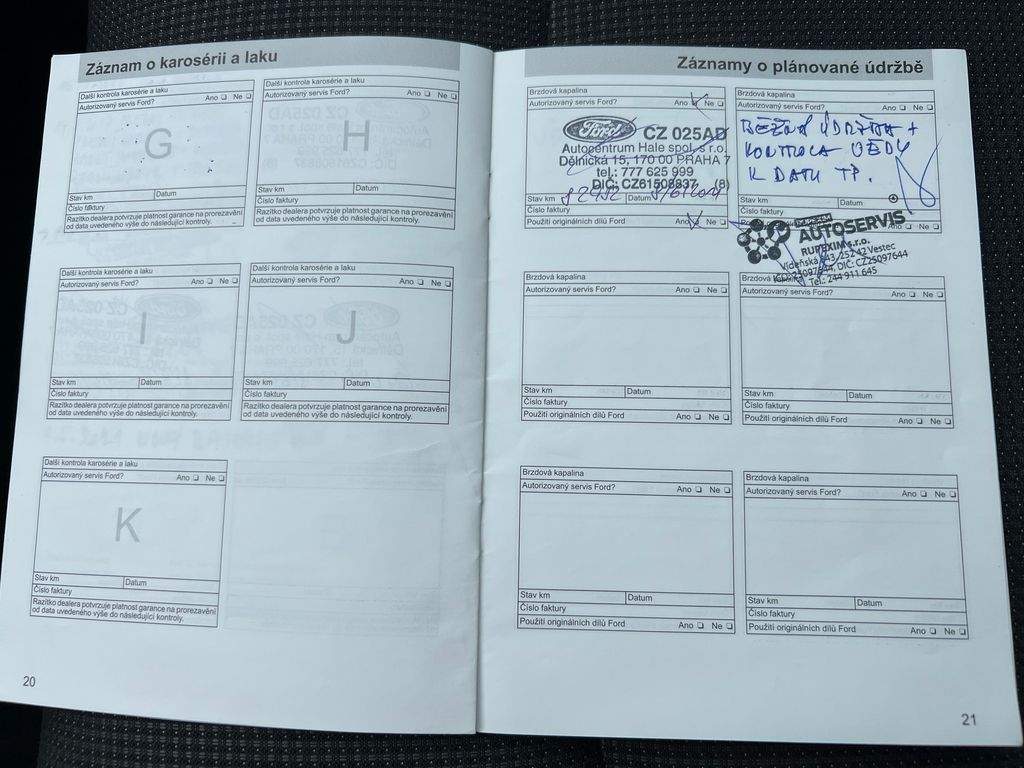 Záznam o karosérii a laku
Další kontrola karosérie a laku
Autorizovaný servis Ford? Ano ❏ Ne ❏
G
Stav km Datum
Číslo faktury
Razítko dealera potvrzuje platnost garance na prorezavění
od data uvedeného výše do následující kontroly.
Další kontrola karosérie a laku
Autorizovaný servis Ford? Ano ❏ Ne ❏
H
Stav km Datum
Číslo faktury
Razítko dealera potvrzuje platnost garance na prorezavění
od data uvedeného výše do následující kontroly.
Další kontrola karosérie a laku
Autorizovaný servis Ford? Ano ❏ Ne ❏
I
Stav km Datum
Číslo faktury
Razítko dealera potvrzuje platnost garance na prorezavění
od data uvedeného výše do následující kontroly.
Další kontrola karosérie a laku
Autorizovaný servis Ford? Ano ❏ Ne ❏
J
Stav km Datum
Číslo faktury
Razítko dealera potvrzuje platnost garance na prorezavění
od data uvedeného výše do následující kontroly.
Další kontrola karosérie a laku
Autorizovaný servis Ford? Ano ❏ Ne ❏
K
Stav km Datum
Číslo faktury
Razítko dealera potvrzuje platnost garance na prorezavění
od data uvedeného výše do následující kontroly.
20
Záznamy o plánované údržbě
Brzdová kapalina
Autorizovaný servis Ford? Ano ❏ Ne ❏
Ford CZ 025AD
Autocentrum Hale spol. s r.o.
Dělnická 15, 170 00 PRAHA 7
tel.: 777 625 999
DIČ: CZ61508837 (8)
Stav km Datum
Číslo faktury
Použití originálních dílů Ford Ano ❏ Ne ❏
Brzdová kapalina
Autorizovaný servis Ford? Ano ❏ Ne ❏
BĚŽNÁ ÚDRŽBA +
KONTROLA VĚDY
K DATU TP.
Stav km Datum
Číslo faktury
Ano ❏ Ne ❏
RUPEXIM
AUTOSERVIS
RUPEXIM s.r.o.
Vídeňská 243, 252 42 Vestec
IČO: 25097644, DIČ: CZ25097644
Tel.: 244 911 645
Brzdová kapalina
Autorizovaný servis Ford? Ano ❏ Ne ❏
Stav km Datum
Číslo faktury
Použití originálních dílů Ford Ano ❏ Ne ❏
Brzdová kapalina
Autorizovaný servis Ford? Ano ❏ Ne ❏
Stav km Datum
Číslo faktury
Použití originálních dílů Ford Ano ❏ Ne ❏
Brzdová kapalina
Autorizovaný servis Ford? Ano ❏ Ne ❏
Stav km Datum
Číslo faktury
Použití originálních dílů Ford Ano ❏ Ne ❏
Brzdová kapalina
Autorizovaný servis Ford? Ano ❏ Ne ❏
Stav km Datum
Číslo faktury
Použití originálních dílů Ford Ano ❏ Ne ❏
21